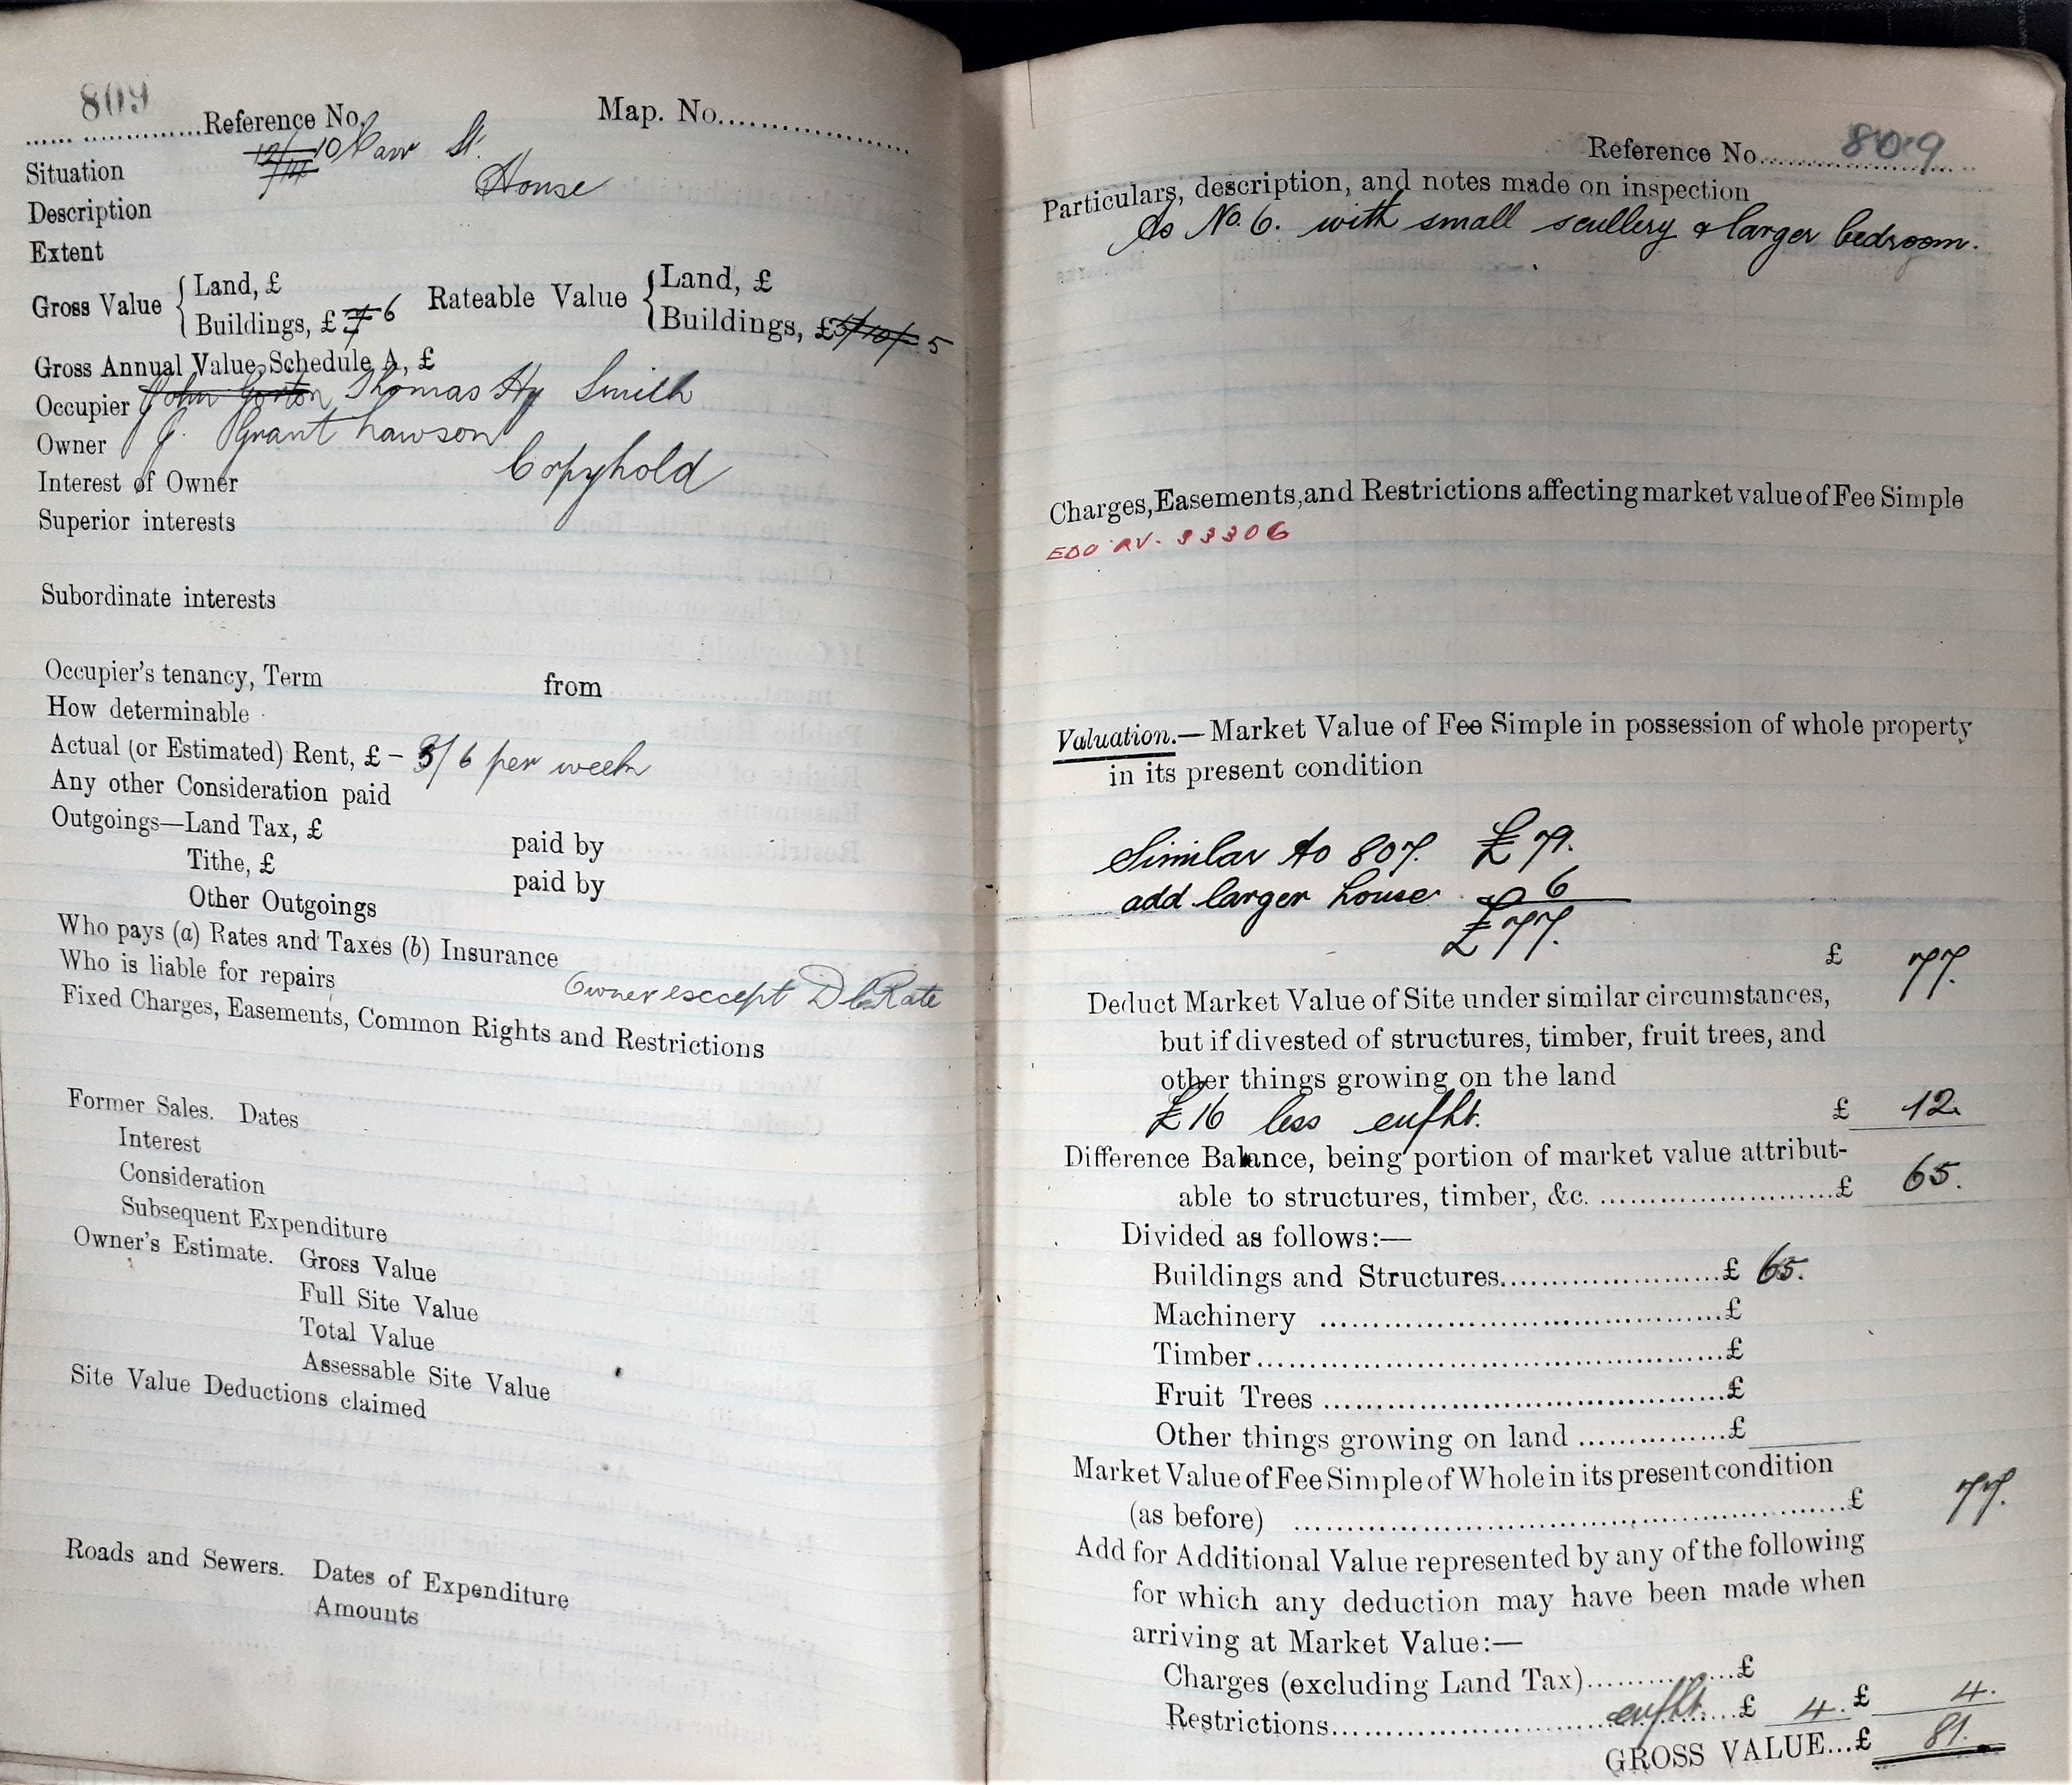 809
Reference No. Map. No.
Situation 10 St.
Description House
Extent
Gross Value { Land, £
Buildings, £ 7 6
Rateable Value { Land, £
Buildings, £ 5/10/- 5
Gross Annual Value, Schedule A, £
Occupier John Gorton Thomas Hy Smith
Owner J. Grant Lawson
Interest of Owner Copyhold
Superior interests
Subordinate interests
Occupier's tenancy, Term from
How determinable
Actual (or Estimated) Rent, £ – 3/6 per week
Any other Consideration paid
Outgoings—Land Tax, £ paid by
Tithe, £ paid by
Other Outgoings
Who pays (a) Rates and Taxes (b) Insurance
Who is liable for repairs Owner except Rate
Fixed Charges, Easements, Common Rights and Restrictions
Former Sales. Dates
Interest
Consideration
Subsequent Expenditure
Owner's Estimate. Gross Value
Full Site Value
Total Value
Assessable Site Value
Site Value Deductions claimed
Roads and Sewers. Dates of Expenditure
Amounts
Reference No. 809
Particulars, description, and notes made on inspection
As No. 6. with small scullery & larger bedroom.
Charges, Easements, and Restrictions affecting market value of Fee Simple
33306
Valuation.—Market Value of Fee Simple in possession of whole property
in its present condition
Similar to 807. £71.
add larger house 6
£77.
£ 77.
Deduct Market Value of Site under similar circumstances,
but if divested of structures, timber, fruit trees, and
other things growing on the land
£16 less enfht. £ 12.
Difference Balance, being portion of market value attribut-
able to structures, timber, &c. £ 65.
Divided as follows:—
Buildings and Structures £ 65.
Machinery £
Timber £
Fruit Trees £
Other things growing on land £
Market Value of Fee Simple of Whole in its present condition
(as before) £ 77.
Add for Additional Value represented by any of the following
for which any deduction may have been made when
arriving at Market Value:—
Charges (excluding Land Tax) £
Restrictions enfht. £ 4. £ 4.
GROSS VALUE...£ 81.